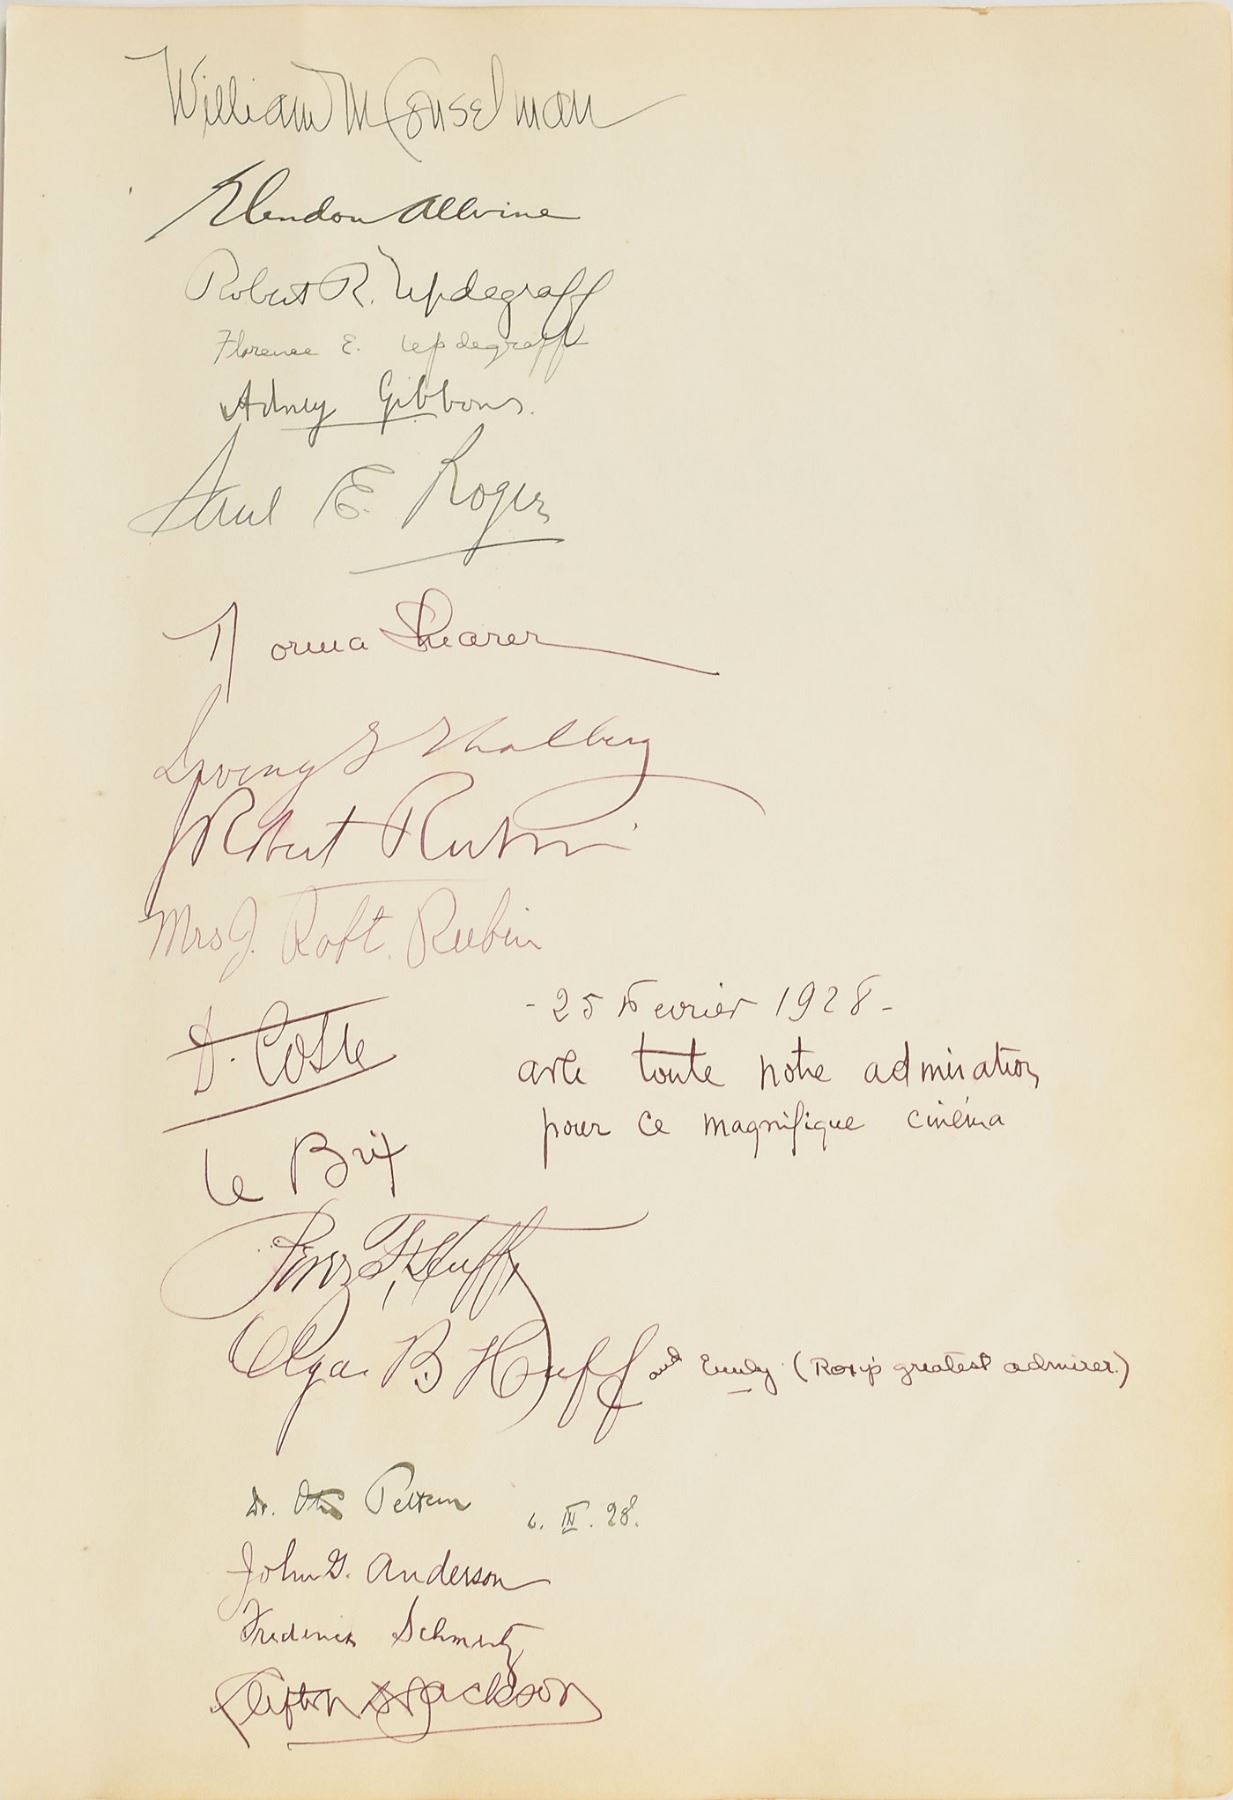 William M Conselman
Glendon Allvine
Robert R. Updegraff
Florence E. Updegraff
Adney Gibbons.
Paul E. Roger
Norma Shearer
Irving G Thalberg
J Robert Rubin
Mrs J. Robt. Rubin
D. Coste - 25 Fevrier 1928 -
avec toute notre admiration
pour ce magnifique cinéma
Le Brix
Huff
Olga B Huff and Emily (Roxy's greatest admirer.)
Dr. Otto Peltzer 6. III. 28.
John G. Anderson
Frederick Schmertz
Clifton Jackson